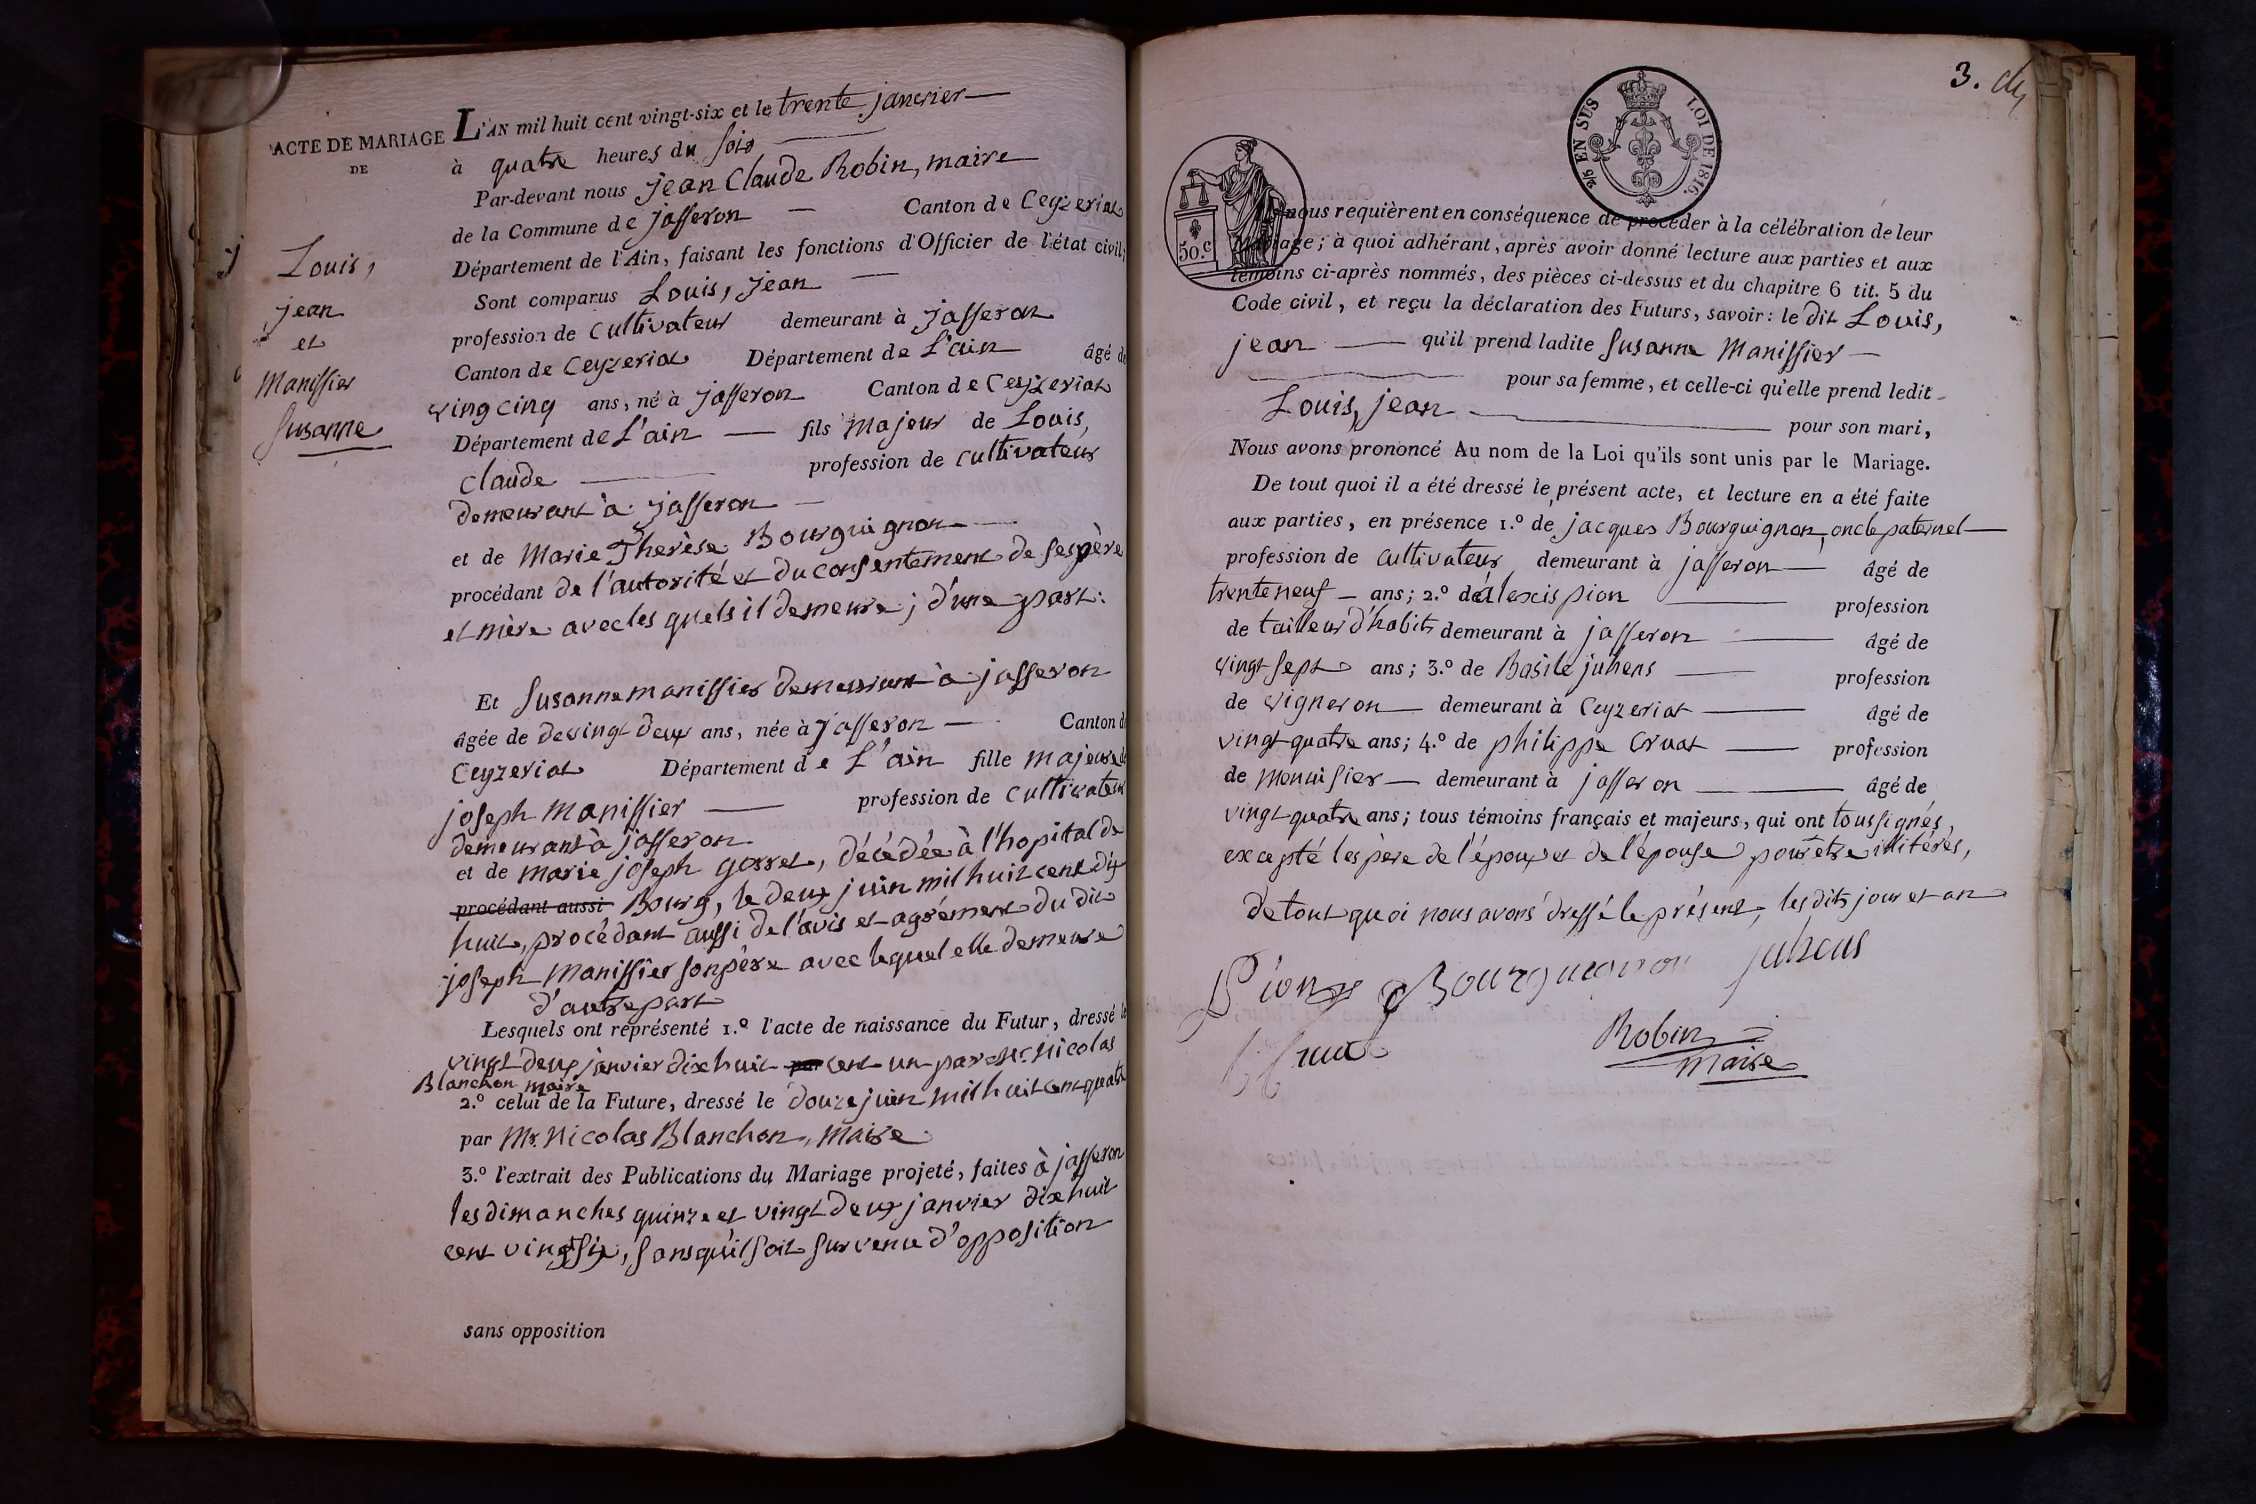 ACTE DE MARIAGE
DE
Louis,
jean
et
Manissier
Susanne
L'AN mil huit cent vingt-six et le trente janvier
à quatre heures du soir
Par-devant nous jean Claude Robin, maire
de la Commune de jasseron Canton de Ceyzeriat
Département de l'Ain, faisant les fonctions d'Officier de l'état civil;
Sont comparus Louis, jean
profession de cultivateur demeurant à jasseron
Canton de Ceyzeriat Département de L'ain âgé de
vingcinq ans, né à jasseron Canton de Ceyzeriat
Département de L'ain fils majeur de Louis,
claude profession de cultivateur
demeurant à jasseron
et de Marie Therèse Bourguignon
procédant de l'autorité et du consentement de ses père
et mère avec les quels il demeure; d'une part:
Et Susanne manissier demeurant à jasseron
âgée de de vingt deux ans, née à jasseron Canton de
Ceyzeriat Département de L'ain fille majeure de
joseph Manissier profession de cultivateur
demeurant à jasseron
et de marie joseph gorret, décédée à l'hopital de
procédant aussi Bourg, le deux juin mil huit cent dix
huit, procédant aussi de l'avis et agrément du dit
joseph Manissier son père avec lequel elle demeure
d'autre part
Lesquels ont représenté 1.º l'acte de naissance du Futur, dressé le
vingt deux janvier dix huit cent un par Mr. Nicolas
Blanchon maire
2.º celui de la Future, dressé le douze juin mil huit cent quatre
par Mr. Nicolas Blanchon, Maire
3.º l'extrait des Publications du Mariage projeté, faites à jasseron
les dimanches quinze et vingt deux janvier dix huit
cent vingt six, sans qu'il soit survenu d'opposition
sans opposition
3.
2/5 EN SUS
LOI DE 1816.
50.c
nous requièrent en conséquence de procéder à la célébration de leur
Mariage; à quoi adhérant, après avoir donné lecture aux parties et aux
témoins ci-après nommés, des pièces ci-dessus et du chapitre 6 tit. 5 du
Code civil, et reçu la déclaration des Futurs, savoir: le dit Louis,
jean qu'il prend ladite Susanne Manissier
pour sa femme, et celle-ci qu'elle prend ledit
Louis, jean
pour son mari,
Nous avons prononcé Au nom de la Loi qu'ils sont unis par le Mariage.
De tout quoi il a été dressé le présent acte, et lecture en a été faite
aux parties, en présence 1.º de jacques Bourguignon, oncle paternel
profession de cultivateur demeurant à jasseron âgé de
trente neuf ans; 2.º de alexis pion profession
de tailleur d'habits demeurant à jasseron âgé de
vingt sept ans; 3.º de Basile juhens profession
de vigneron demeurant à Ceyzeriat âgé de
vingt quatre ans; 4.º de philippe Cruat profession
de menuisier demeurant à jasseron âgé de
vingt quatre ans; tous témoins français et majeurs, qui ont tous signés,
excepté les père de l'époux et de l'épouse pour être illitérés,
de tout quoi nous avons dressé le présent, les dits jour et an
Pion Bourguignon juhens
Cruat
Robin
Maire